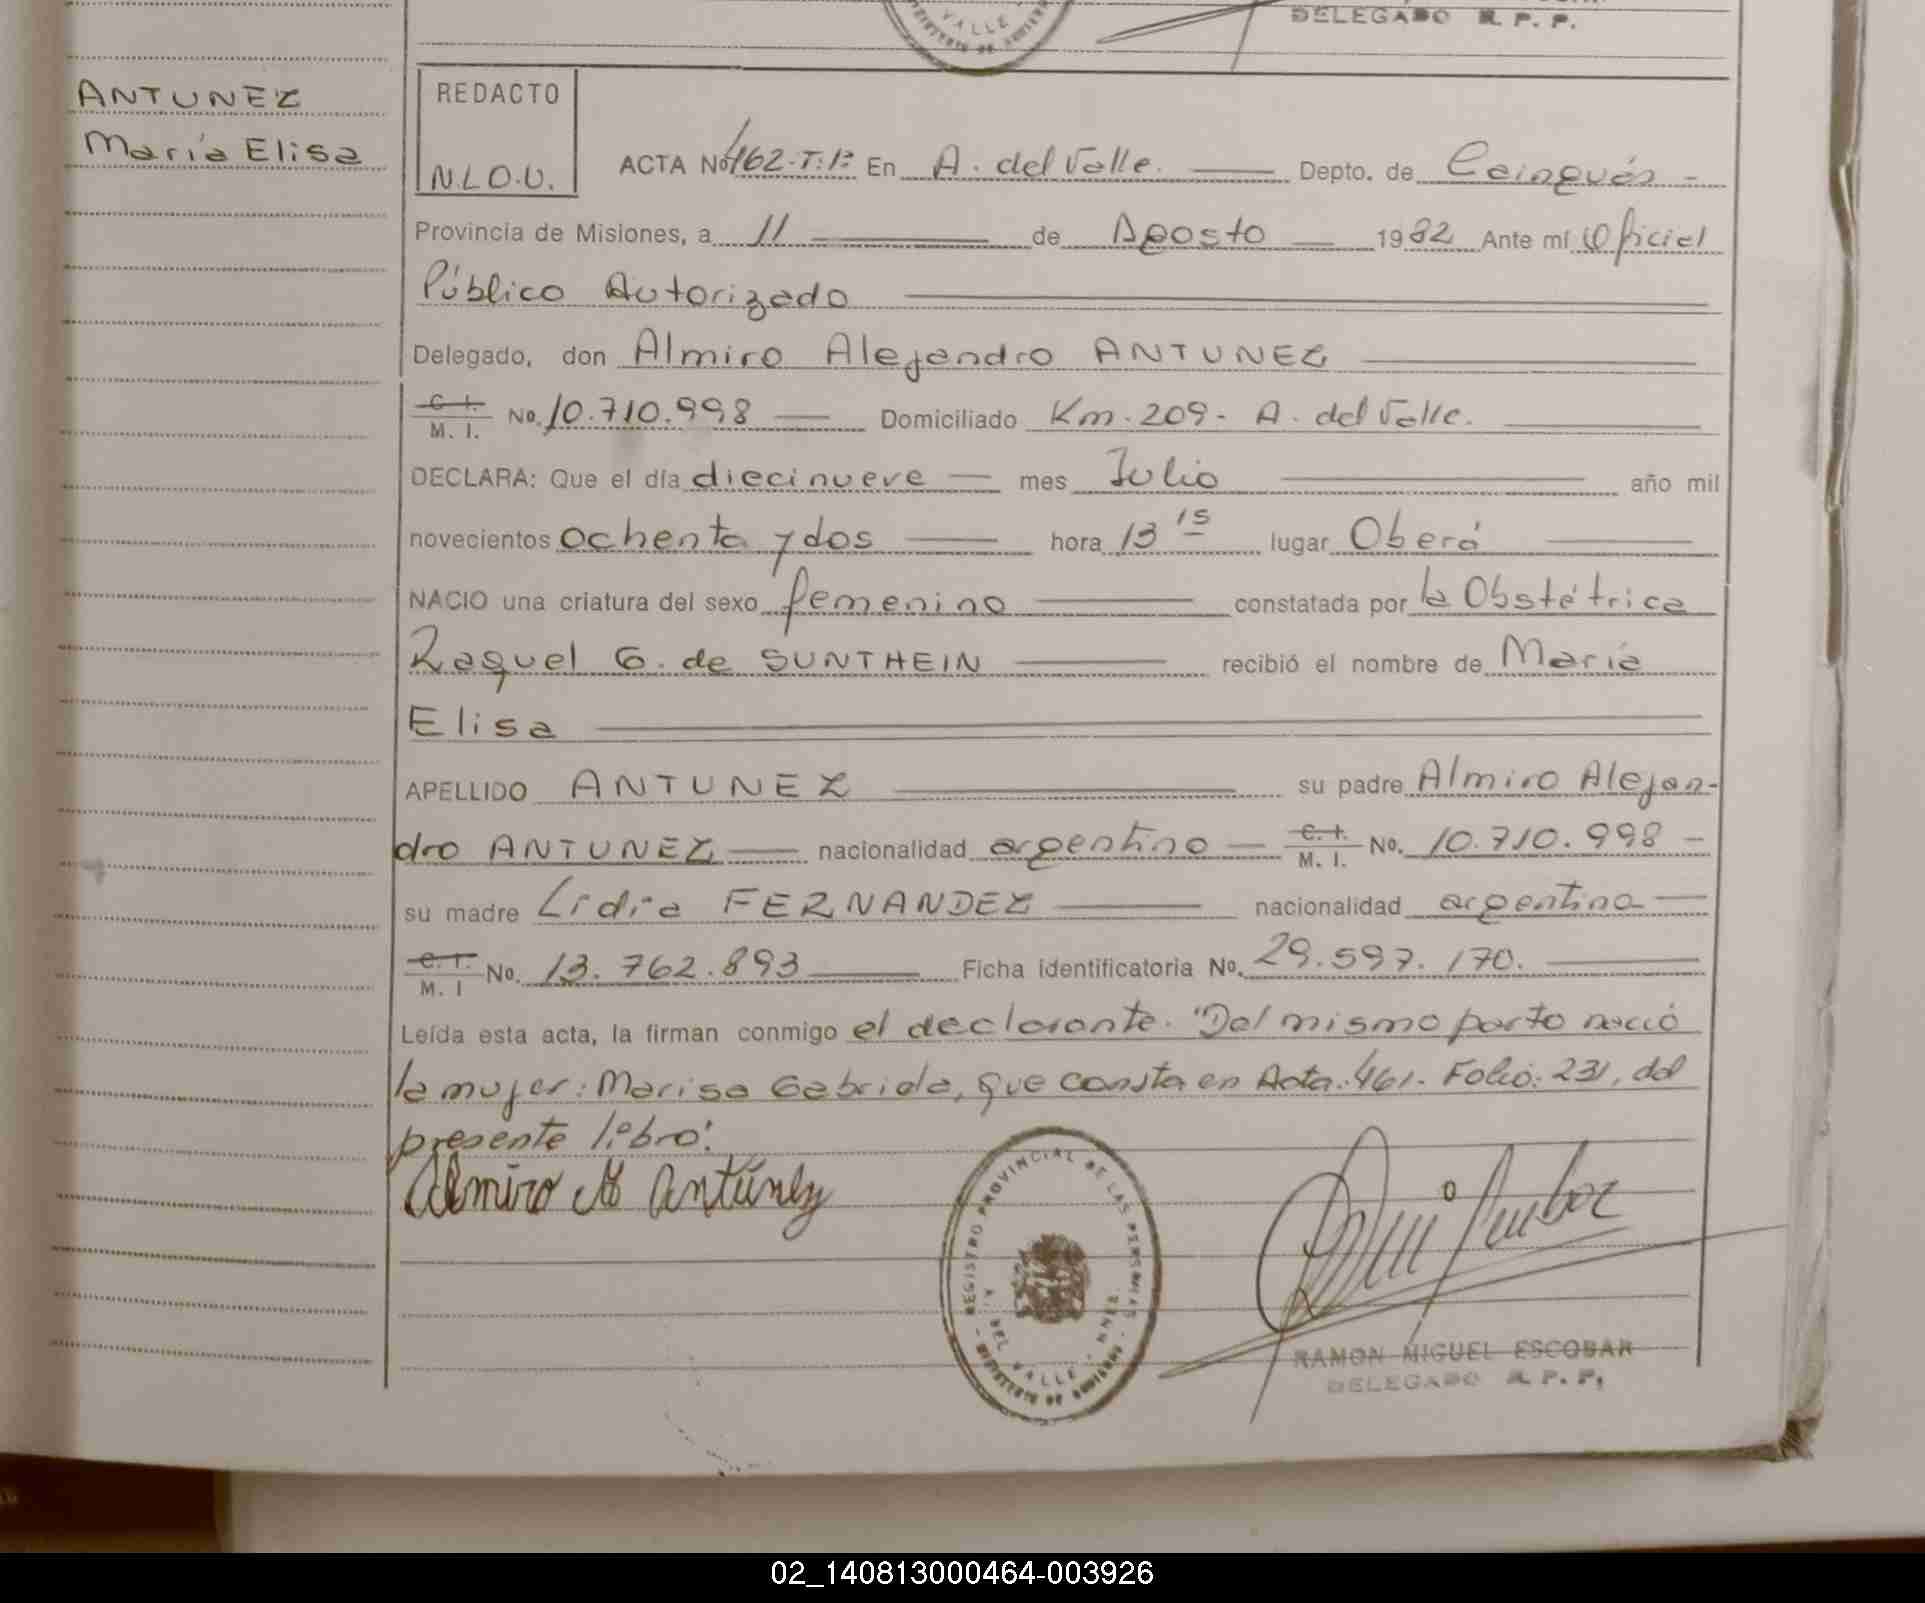 VALLE
DELEGADO R. P. P.
ANTUNEZ
María Elisa
REDACTO
N.L.O.U.
ACTA No 462-T:1º En A. del Valle. Depto. de Cainguás -
Provincia de Misiones, a 11 de Agosto 1982 Ante mí Oficial
Público Autorizado
Delegado, don Almiro Alejandro ANTUNEZ
C. I. M. I. No. 10.710.998 Domiciliado Km. 209 - A. del Valle.
DECLARA: Que el día diecinueve mes Julio año mil
novecientos ochenta y dos hora 13 15 lugar Oberá
NACIO una criatura del sexo femenino constatada por la Obstétrica
Raquel G. de SUNTHEIN recibió el nombre de María
Elisa
APELLIDO ANTUNEZ su padre Almiro Alejan-
dro ANTUNEZ nacionalidad argentino C. I. M. I. No. 10.710.998 -
su madre Lidia FERNANDEZ nacionalidad argentina
C. I. M. I No. 13.762.893 Ficha identificatoria No. 29.597.170.
Leída esta acta, la firman conmigo el declarante. "Del mismo parto nació
la mujer: Marisa Gabriela, que consta en Acta. 461. Folio: 231, del
presente libro".
Almiro A Antúnez
REGISTRO PROVINCIAL DE LAS PERSONAS
A. DEL VALLE - MNES.
MINISTERIO DE GOBIERNO
RAMON MIGUEL ESCOBAR
DELEGADO R. P. P.
02_140813000464-003926